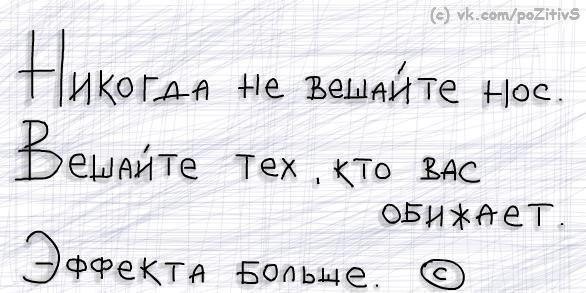 (c) vk.com/poZitivS
Никогда не вешайте нос.
Вешайте тех, кто вас
обижает.
Эффекта больше. ©